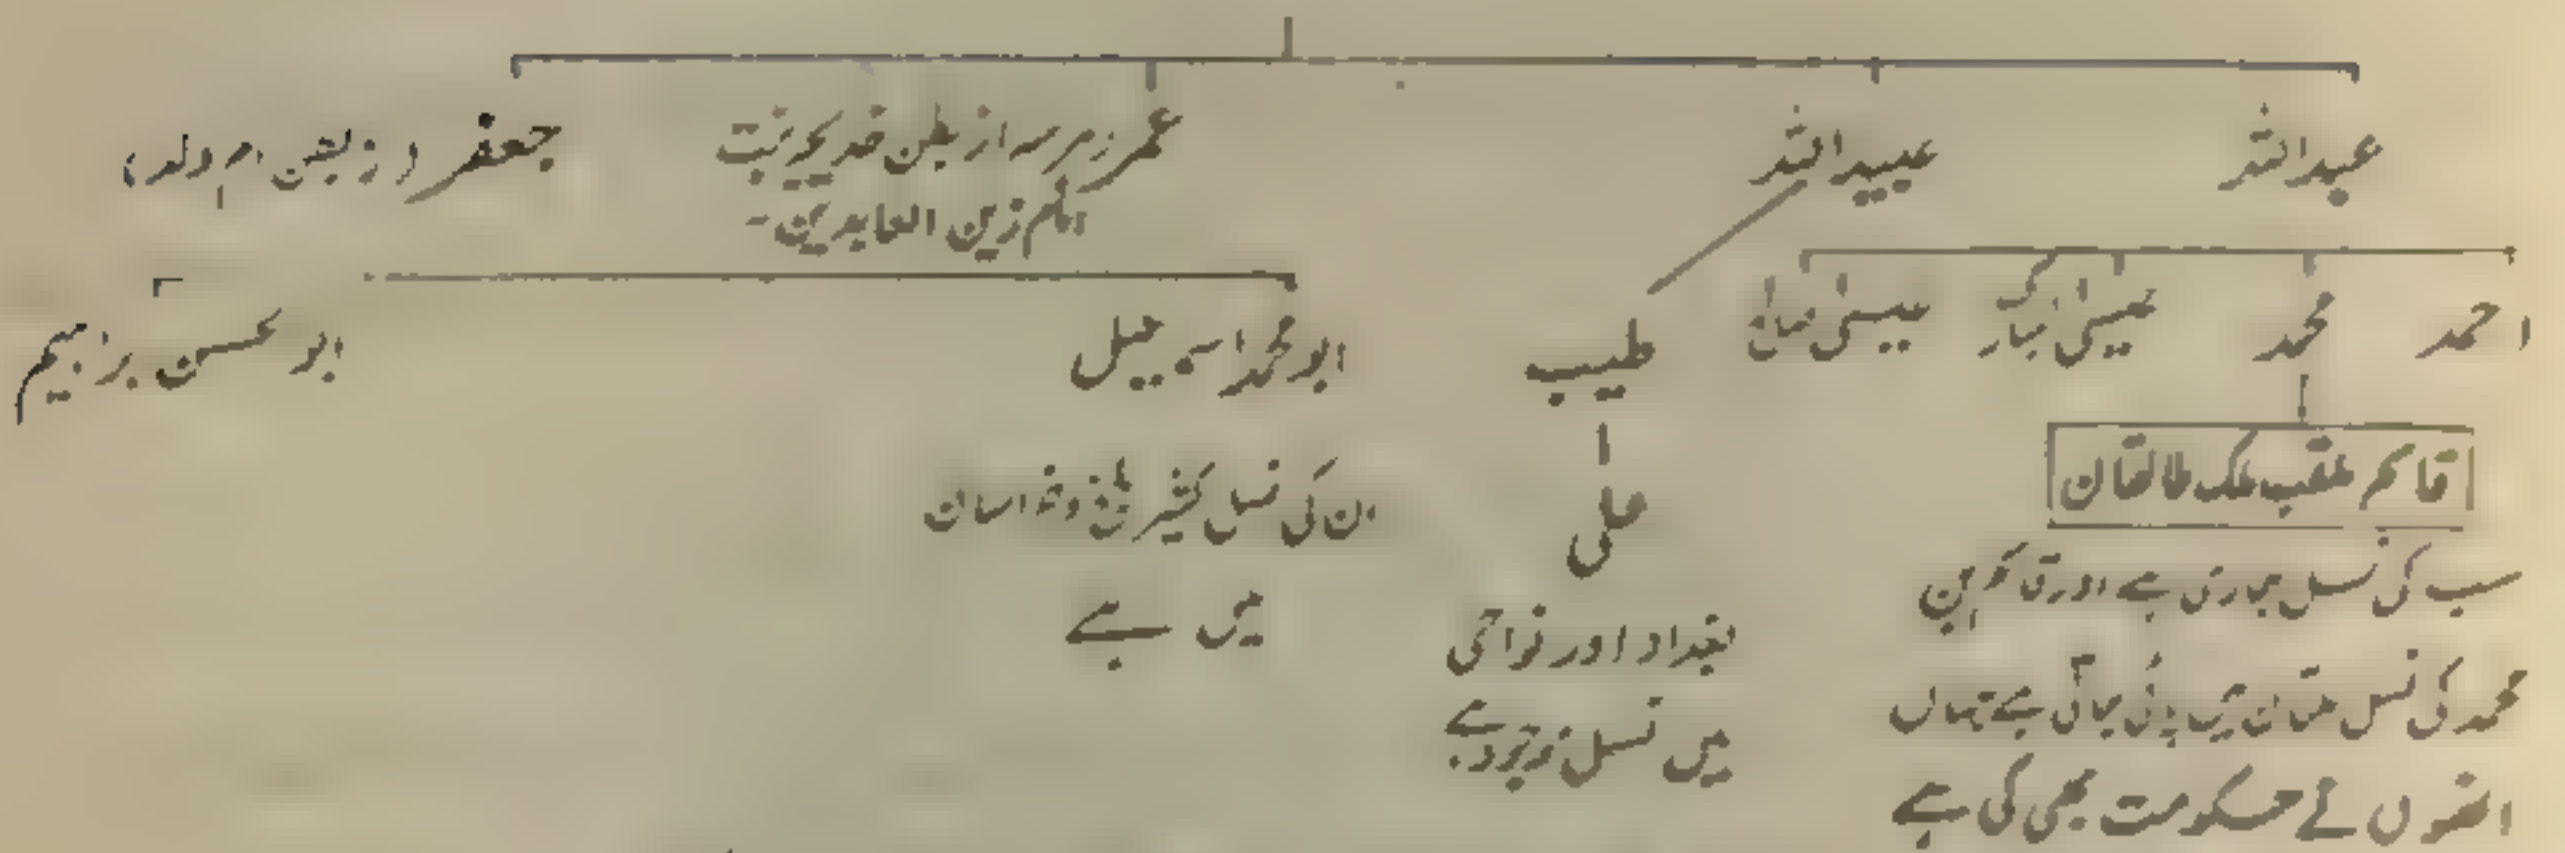 عبداللہ
عبیداللہ
عمر ہر سہ از بطن خدیجہ بنت
امام زین العابدین۔
جعفر (از بطن ام ولد)
احمد
محمد
عیسیٰ مبارک
عیسیٰ صالح
قاسم ملقب ملک طالقان
سب کی نسل جاری ہے اور
محمد کی نسل ملتان میں پائی جاتی ہے جہاں
انھوں نے حکومت بھی کی ہے
طیب
علی
بغداد اور نواحی
میں نسل موجود ہے
ابو محمد اسمعیل
ان کی نسل کثیر بلخ و خراسان
میں ہے
ابو الحسن ابراہیم